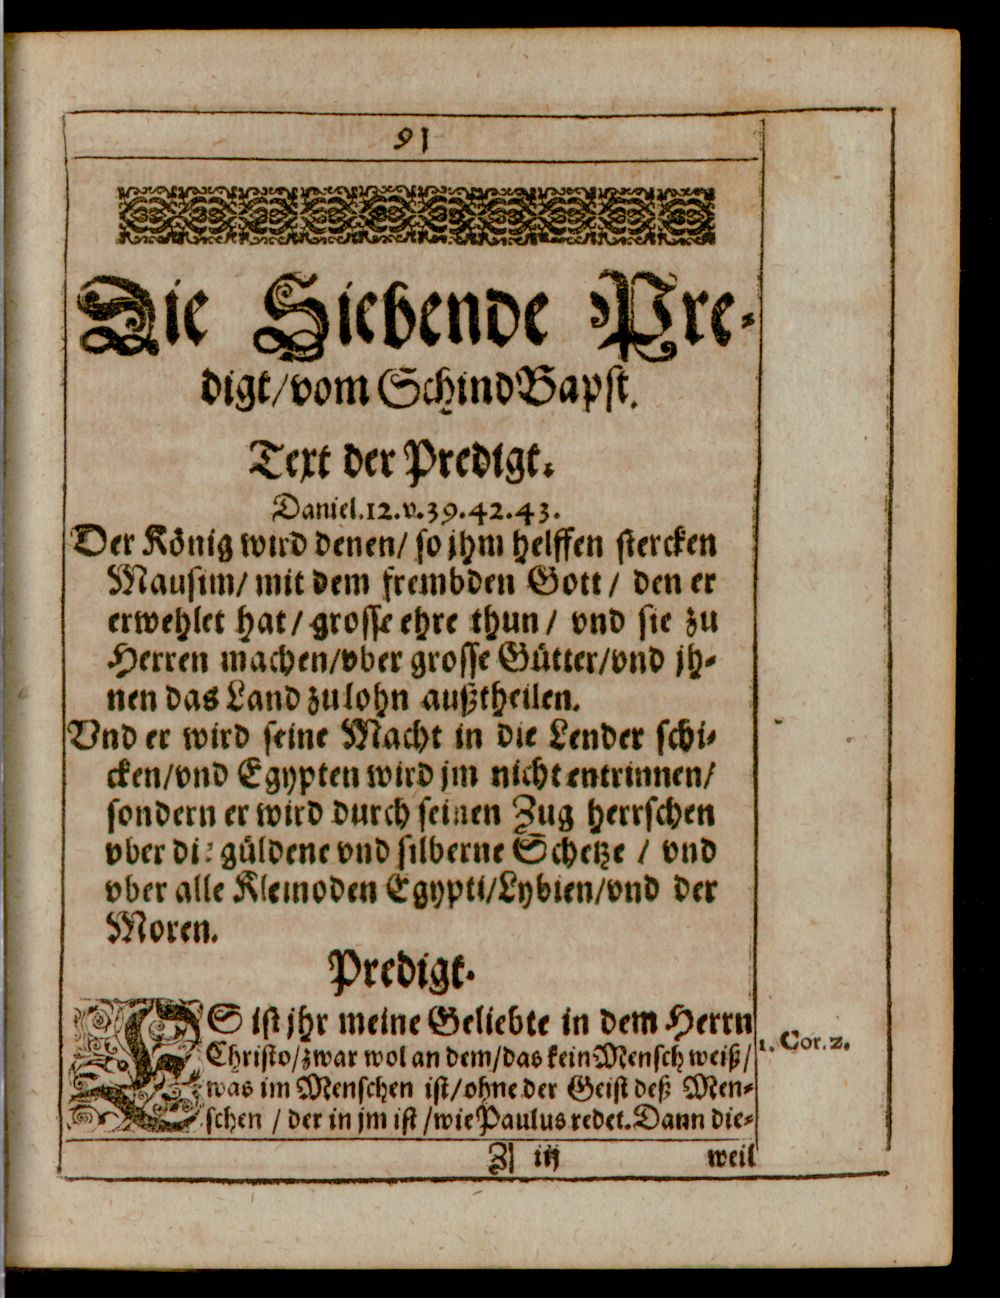 91
Die Siebende Pre-
digt/vom SchindBapst.
Text der Predigt.
Daniel.12.v.39.42.43.
Der König wird denen/ so jhm helffen stercken
Mausim/ mit dem frembden Gott / den er
erwehlet hat / grosse ehre thun / vnd sie zu
Herren machen/vber grosse Gütter/vnd jh-
nen das Land zu lohn außtheilen.
Vnd er wird seine Macht in die Lender schi-
cken/vnd Egypten wird jm nicht entrinnen/
sondern er wird durch seinen Zug herrschen
vber die güldene vnd silberne Schetze / vnd
vber alle Kleinoden Egypti/Lybien/vnd der
Moren.
Predigt.
ES ist jhr meine Geliebte in dem Herrn
Christo/zwar wol an dem/das kein Mensch weiß/
1. Cor. 2.
was im Menschen ist/ohne der Geist deß Men-
schen / der in jm ist /wie Paulus redet. Dann die-
Z iij weil